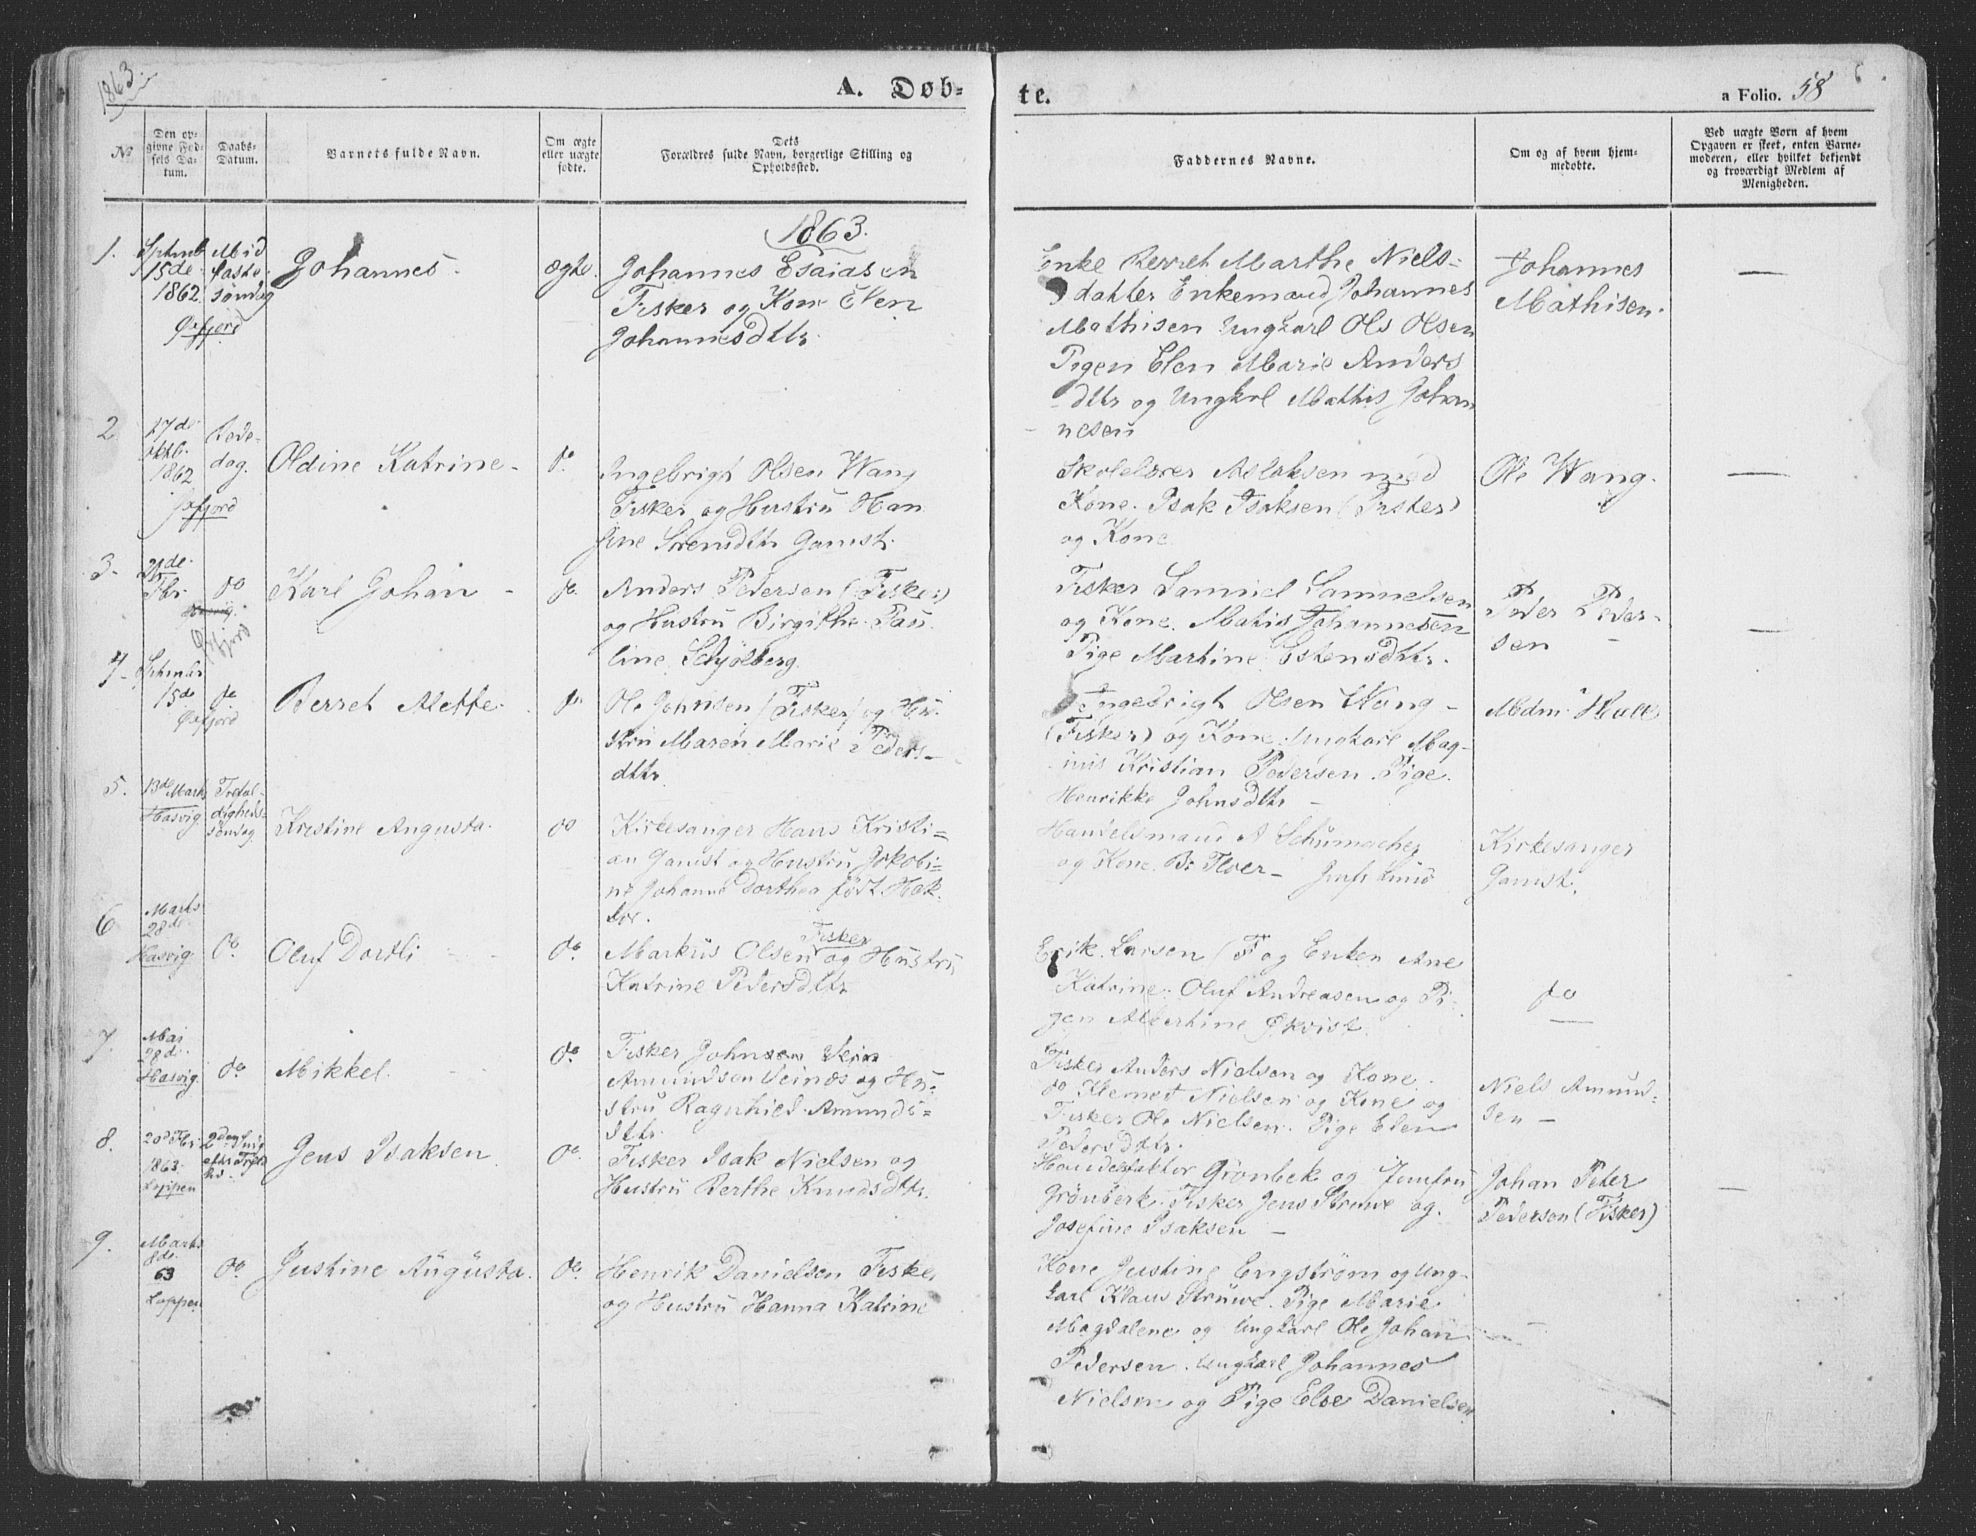 1863.
A. Døb-
te.
a Folio. 58
No
Den op-
givne Fød-
sels Da-
tum.
Daabs-
Datum.
Barnets fulde Navn.
Om ægte
eller uægte
fødte.
Dets
Forældres fulde Navn, borgerlige Stilling og
Opholdssted.
Faddernes Navne.
Om og af hvem hjem-
medøbte.
Ved uægte Børn af hvem
Opgaven er skeet, enten Barne-
moderen, eller hvilket bekjendt
og troværdigt Medlem af
Menigheden.
1863.
1.
Septmb
15de
1862.
Øxfjord
Mid
faste
søndag
Johannes
ægte.
Johannes Esaiasen
Fisker og Kone Elen
Johannesdttr
Enke Berret Marthe Niels-
datter Enkemand Johannes
Mathisen Ungkarl Ols Olsen
Pigen Elen Marie Anders
dttr og Ungkrl Mathis Johan
nesen
Johannes
Mathisen.
2
17de
oktb.
1862
Øxfjord
Bede-
dag.
Oldine Katrine
do
Ingebrigt Olsen Wang
Fisker og Hustru Han
sine Sørensdttr Gamst.
Skolelærer Aslaksen med
Kone. Isak Isaksen (Fisker)
og Kone
Ole Wang.
3.
21de
Fbr.
Øxfjord
do
Karl Johan
do.
Anders Pedersen (Fisker)
og Hustru Birgithe Pau
line Schjølberg.
Fisker Samuel Samuelsen
og Kone. Mathis Johannesen
Pige Martine Estensdttr.
Peder Peder-
sen
4
Septmbr
15de
Øxfjord
do
Berret Alette.
do
Ole Johnsen (Fisker) og Hu-
stru Maren Marie Peders-
dttr
Ingebrigt Olsen Wang
(Fisker) og Kone Ungkarl Mag-
nus Kristian Pedersen. Pige
Henrikke Johnsdttr
Mdm Hall
5.
13de Marts
Hasvig.
Trefol-
digheds
søndag
Kristine Augusta.
do
Kirkesanger Hans Kristi-
an Gamst og Hustru Jakobi-
ne Johanne Dorthea født Hek-
ter.
Handelsmand A Schumacher
og Kone. B: Floer Jmfr
Kirkesanger
Gamst.
6
Marts
28de
Hasvig.
do.
Oluf Dortli
do.
Markus Olsen Fisker og Hustru
Katrine Pedersdttr
Erik Larsen (F og Enken Ane
Katrine. Oluf Andreasen og Pi-
gen Albertine Økvist
do
7.
Mai
28de
Hasvig.
do
Mikkel.
do
Fisker Johnsen
Amundsen Seinæs og Hu-
stru Ragnhild Amunds-
dttr.
Fisker Anders Nielsen og Kone.
do Klemet Nielsen og Kone og
Fisker Ole Nielsen. Pige Elen
Pedersdttr.
Niels Amund-
sen
8.
20d Fbr
1863.
Loppen
Jens Isaksen
do.
Fisker Isak Nielsen og
Hustru Berthe Knudsdttr.
Handelsfaktor Grønbek og Jomfru
Grønberk. Fisker Jens Struve og
Josefine Isaksen
Johan Peter
Pedersen (Fisker)
9.
Marts
8de
63
Loppen
do.
Justine Augusta.
do.
Henrik Danielsen Fisker
og Hustru Hanna Katrine
Kone Justine Engstrøm og Ung-
karl Klaus Struve. Pige Marie
Magdalene og Ungkarl Ole Johan
Pedersen. Ungkarl Johannes
Nielsen og Pige Else Danielsen